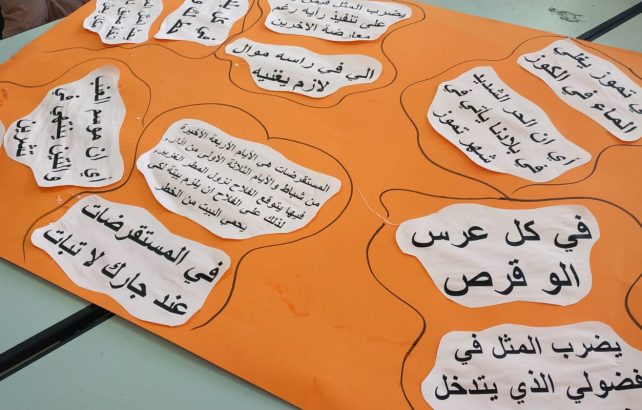 يضرب المثل فيمن
على تنفيذ رايا رغم
معارضة الآخرين
الي في راسه موال
لازم يغنيه
في تموز يغلي
الماء في الكوز
أي ان الحر الشديد
في بلادنا يأتي في
شهر تموز
المستقرضات هي الأيام الأربعة الأخيرة
من شباط والأيام الثلاثة الأولى من اذار
فيها يتوقع الفلاح نزول المطر الغزير
لذلك على الفلاح ان يلزم بيته لكي
يحمي البيت من الخطر
في المستقرضات
عند جارك لا تبات
أي ان موسم
والتين ينتهي في
تشرين
في كل عرس
الو قرص
يضرب المثل في
فضولي الذي يتدخل